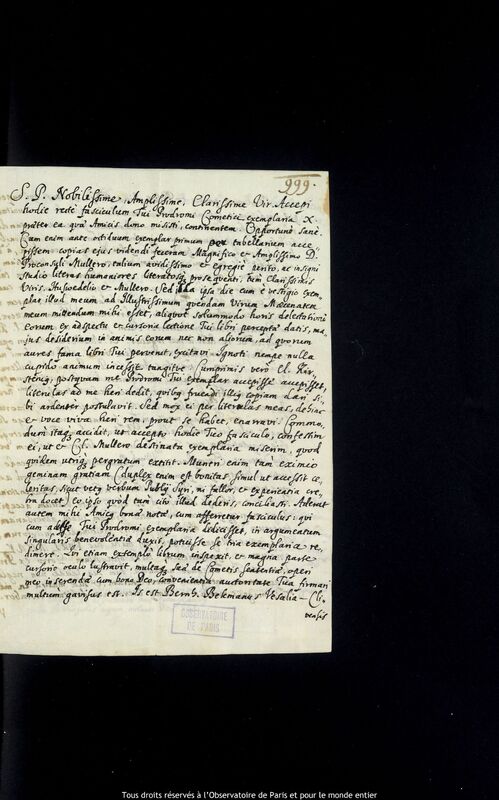 999.
S. P. Nobilissime, Amplissime, Clarissime Vir. Accepi
hodie rectè fasciculum Tui Prodromi Cometici exemplaria X
præter ea quæ Amicis dono misisti, continentem. Opportunè sanè.
Cum enim ante octiduum exemplar primum per tabellarium acce-
pissem copiam ejus videndi feceram Magnifico et Amplissimo D.
Proconsuli Mullero, talium avidissimo et egregiè perito, ac insigni
studio literas humaniores literatosque prosequenti, tum Clarissimis
Viris, et Mullero. Sed illa ipsa die cum è vestigio exem-
plar illud meum ad Illustrissimum quendam Virum Mæcenatem
meum mittendum mihi esset, aliquot solummodo horis delectationi
eorum ex adspectu et cursoria lectione Tui libri percepta datis, ma-
jus desiderium in animis eorum nec non aliorum, ad quorum
aures fama libri Tui pervenit, excitavi. Ignoti nempe nulla
cupido animum incessit tangitve. Cumprimis verò Cl.
postquam me Prodromi Tui exemplar accepisse accepisset,
literulas ad me heri dedit, quibus fruendi illis copiam dari si-
bi ardenter postulavit. Sed mox ei per literulas meas, debinc
et voce viva heri rem, prout se habet, enarravi. Commo-
dum itaque accidit, ut accepto hodie Tuo fasciculo, confestim
ei, ut et Cl. Mullero destinata exemplaria miserim, quod
quidem utrique pergratum extitit. Muneri enim tam eximio
geminam gratiam (duplex enim est bonitas simul ut accessit ce-
leritas, sicut vetus verbum Publij Syri, ni fallor, et experientia cre-
bra docet) eo ipso quòd tam citò illud dederis, conciliasti. Aderat
autem mihi Amicus bonæ notæ, cum afferretur fasciculus: qui
cum Tui Prodromi exemplaria didicisset, in argumentum
singularis benevolentiæ duxit, potuisse se tria exemplaria re-
dimere. In etiam extemplò librum inspexit, et magna parte
cursorio oculo lustravit, multaque sua de Cometis sententia, operi
meo inserenda cum bono Deo, convenientia autoritate Tua firmari
multum gavisus est. Is est Bernh. Bekmanus Vesalia-Cli-
vensis
OBSERVATOIRE
DE PARIS
Tous droits réservés à l'Observatoire de Paris et pour le monde entier